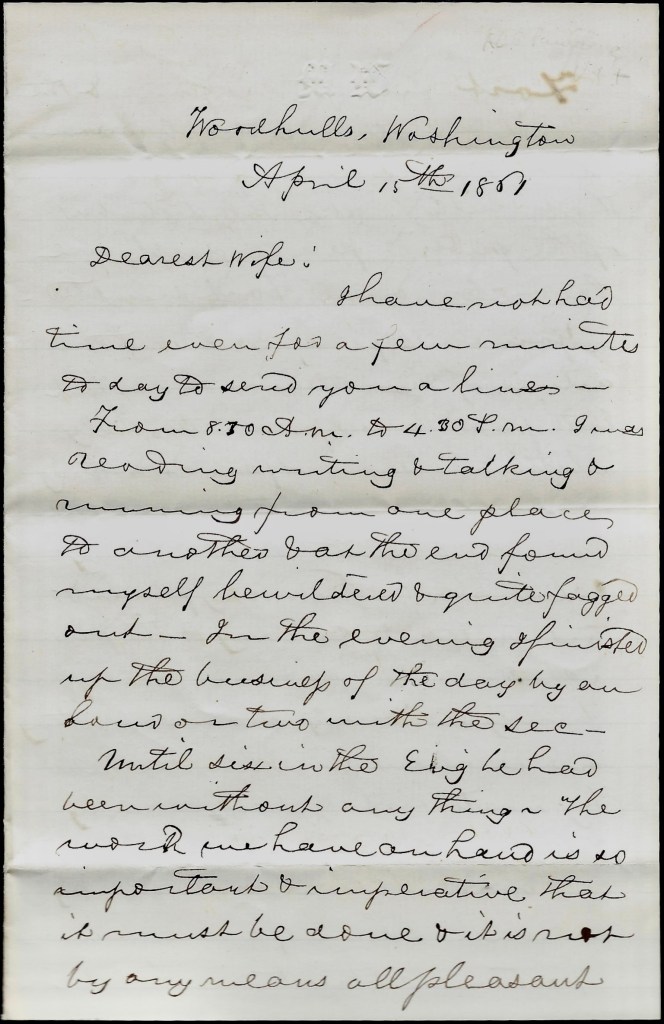 Woodhulls, Washington
April 15th 1861
Dearest Wife:
I have not had
time even for a few minutes
to day to send you a lines –
From 8.30 A.m. to 4.30 P.m. I was
reading writing & talking &
running from one place
to another & at the end found
myself bewildered & quite fagged
out – In the evening I finished
up the business of the day by an
hour or two with the sec –
Until six in the Evng he had
been without any thing – The
work we have on hand is so
important & imperative that
it must be done & it is not
by any means all pleasant